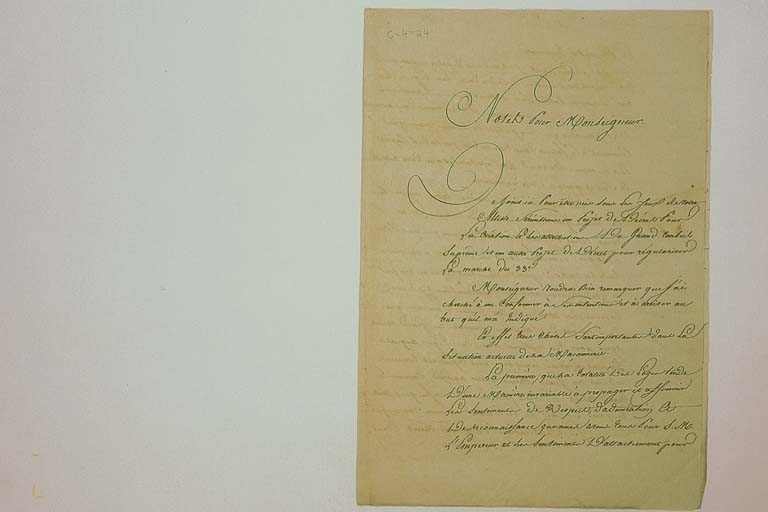 G-4-24
Notes Pour Monseigneur.
Je Joins ici Pour être mis sous les yeux de votre
Altesse Sérénissime un Projet de Décret Pour
La Création et les attributions du Grand Conseil
Suprême et un autre Projet de Décret pour régulariser
La marche du 33e
Monseigneur Voudra Bien remarquer que J'ai
cherché à me Conformer à ses intentions et à arriver au
but qu'il m'a Indiqué
En effet trois Choses sont importantes dans La
Situation actuelle de la Maçonnerie.
La première, que la totalité des Loges tende
D'une Manière invariable à propager et affermir
Les Sentiments de Respect, d'admiration, et
De reconnaissance que nous avons tous Pour S. M.
L'Empereur et les Sentiments D'attachement pour